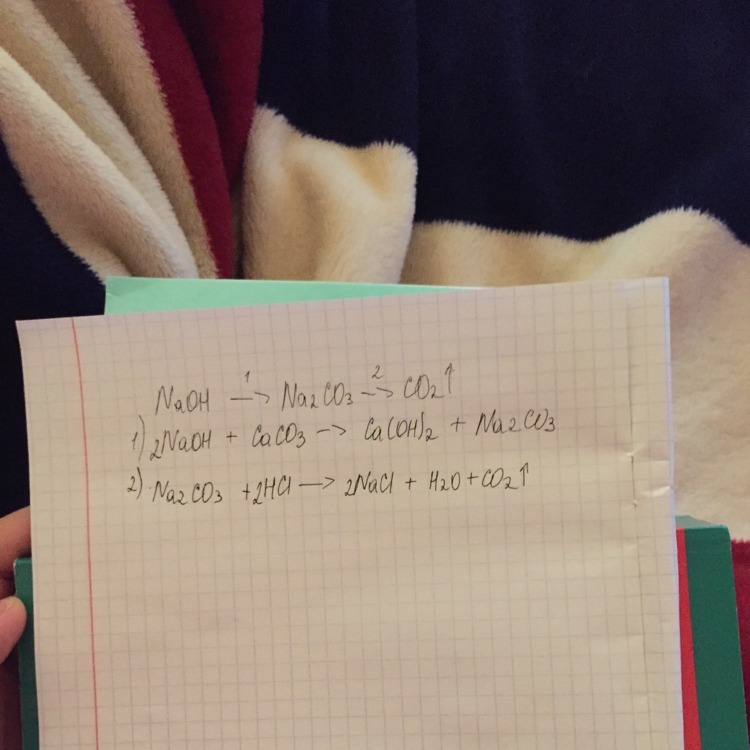 NaOH —1→ Na₂CO₃ —2→ CO₂↑
1) 2NaOH + CaCO₃ → Ca(OH)₂ + Na₂CO₃
2) Na₂CO₃ + 2HCl → 2NaCl + H₂O + CO₂↑